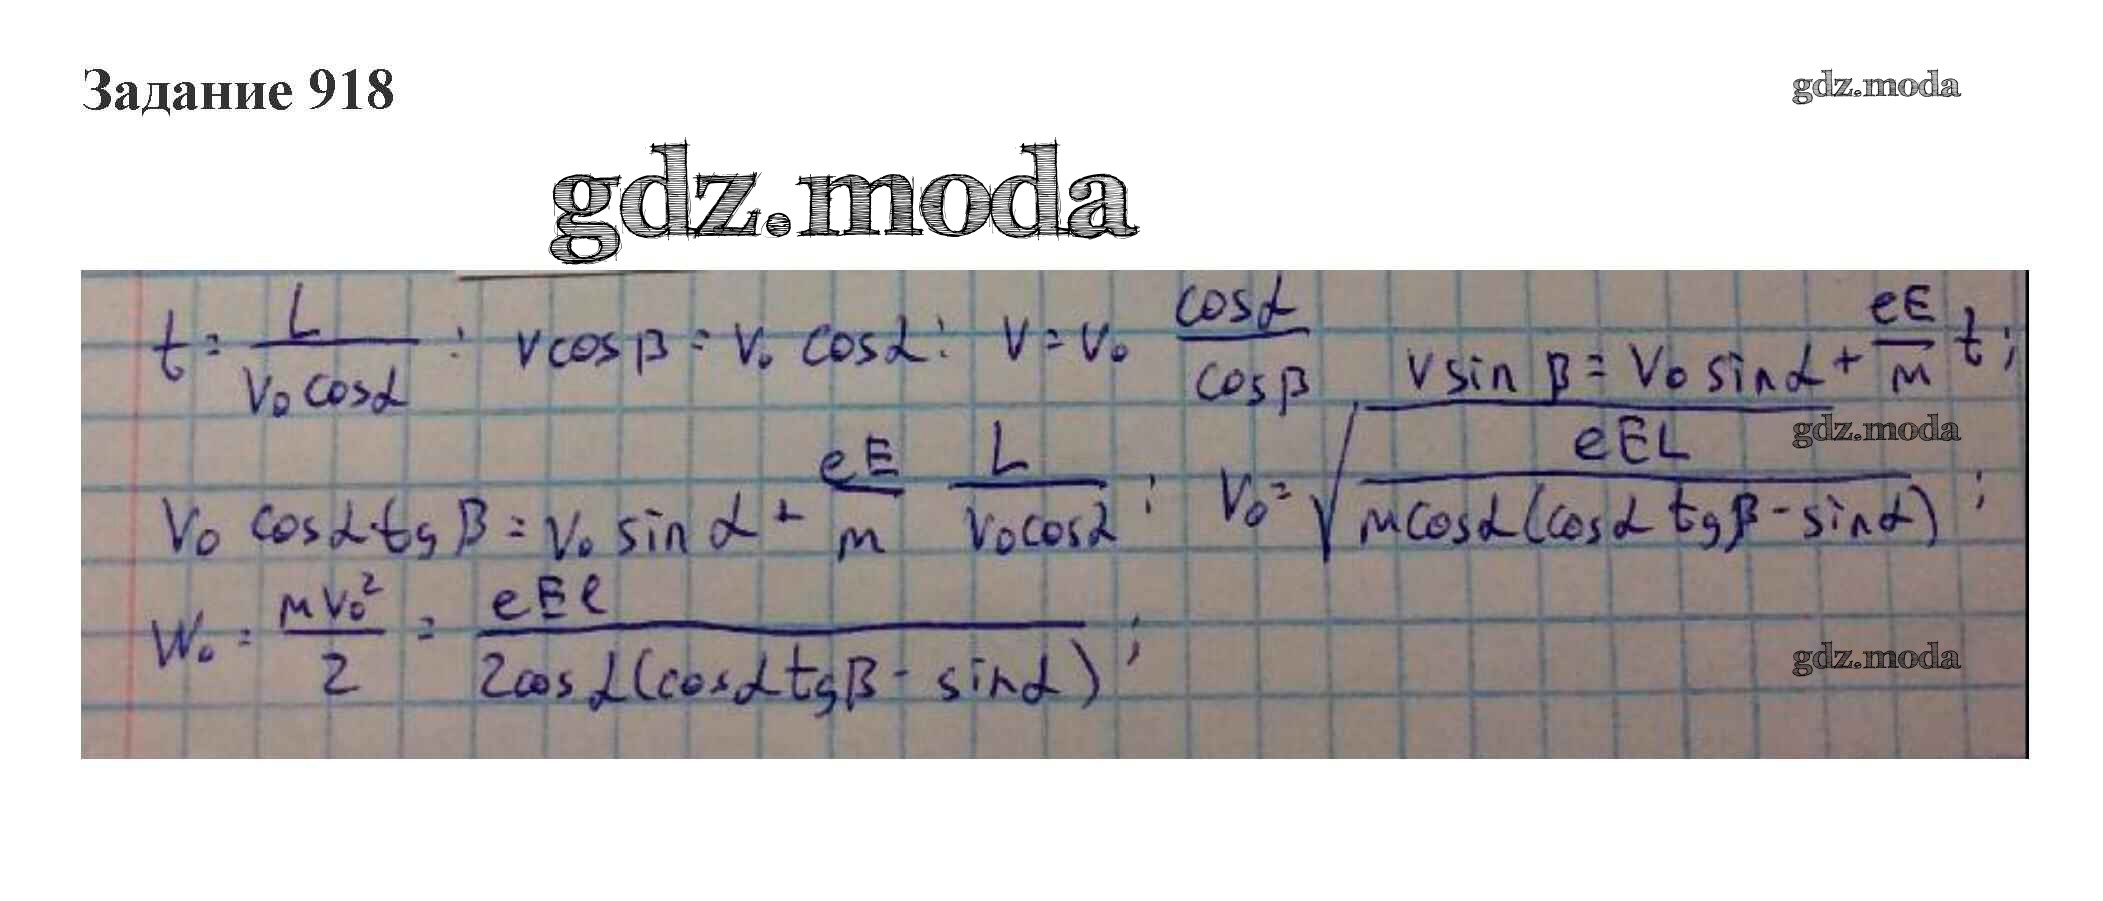 Задание 918
gdz.moda
gdz.moda
t = L / (v₀ cosα) : v cosβ = v₀ cosα : v = v₀ cosα / cosβ v sinβ = v₀ sinα + eE/м t ;
gdz.moda
v₀ cosα tgβ = v₀ sinα + eE/м L / (v₀ cosα) ; v₀ = √(eEL / (м cosα (cosα tgβ - sinα))) ;
W₀ = м v₀² / 2 = eEℓ / (2cosα (cosα tgβ - sinα)) ;
gdz.moda